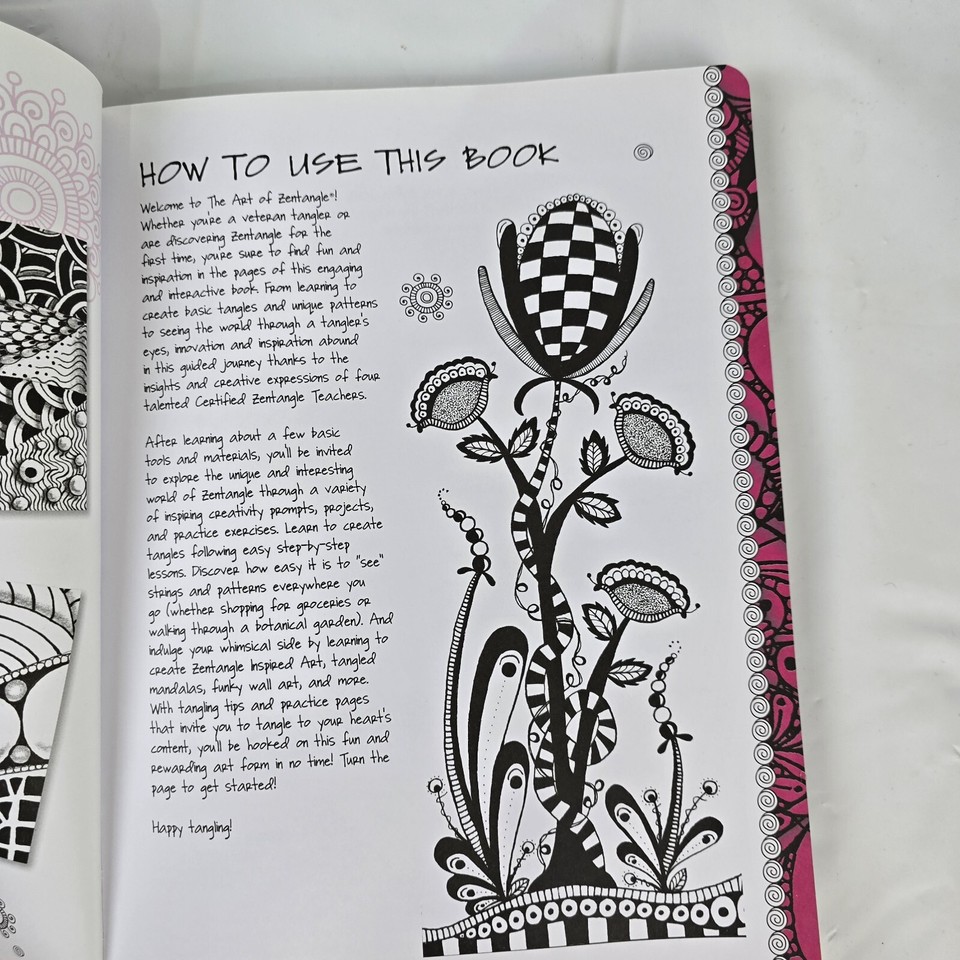 HOW TO USE THIS BOOK
Welcome to The Art of Zentangle®!
Whether you're a veteran tangler or
are discovering Zentangle for the
first time, you're sure to find fun and
inspiration in the pages of this engaging
and interactive book. From learning to
create basic tangles and unique patterns
to seeing the world through a tangler's
eyes, innovation and inspiration abound
in this guided journey thanks to the
insights and creative expressions of four
talented Certified Zentangle Teachers.
After learning about a few basic
tools and materials, you'll be invited
to explore the unique and interesting
world of Zentangle through a variety
of inspiring creativity prompts, projects,
and practice exercises. Learn to create
tangles following easy step-by-step
lessons. Discover how easy it is to "see"
strings and patterns everywhere you
go (whether shopping for groceries or
walking through a botanical garden). And
indulge your whimsical side by learning to
create Zentangle Inspired Art, tangled
mandalas, funky wall art, and more.
With tangling tips and practice pages
that invite you to tangle to your heart's
content, you'll be hooked on this fun and
rewarding art form in no time! Turn the
page to get started!
Happy tangling!